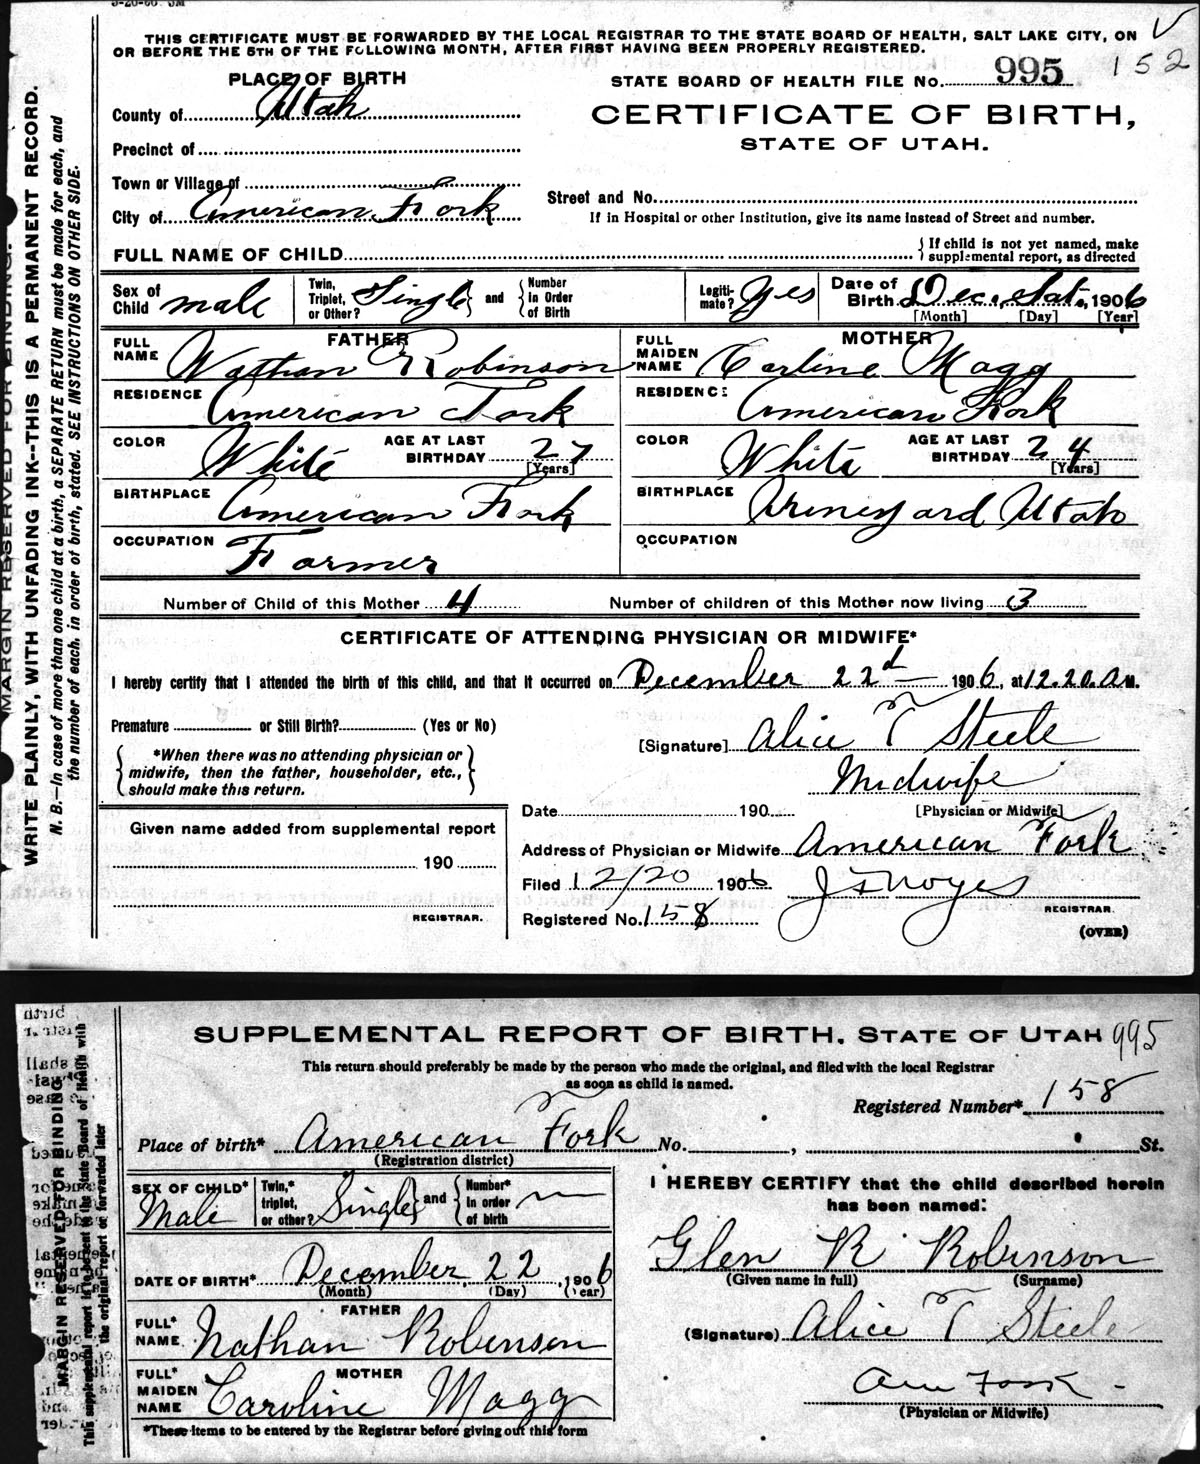 THIS CERTIFICATE MUST BE FORWARDED BY THE LOCAL REGISTRAR TO THE STATE BOARD OF HEALTH, SALT LAKE CITY, ON
OR BEFORE THE 5TH OF THE FOLLOWING MONTH, AFTER FIRST HAVING BEEN PROPERLY REGISTERED.
152
PLACE OF BIRTH
STATE BOARD OF HEALTH FILE No. 995
County of Utah
CERTIFICATE OF BIRTH,
STATE OF UTAH.
Precinct of
Town or Village of
Street and No.
City of American Fork
If in Hospital or other Institution, give its name instead of Street and number.
FULL NAME OF CHILD
{ If child is not yet named, make
supplemental report, as directed
Sex of Child male
Twin, Triplet, or Other? Single and { Number in Order of Birth
Legitimate? Yes
Date of Birth Dec, 1906
[Month] [Day] [Year]
FATHER
FULL NAME Nathan Robinson
MOTHER
FULL MAIDEN NAME Carline Magg
RESIDENCE American Fork
RESIDENCE American Fork
COLOR White AGE AT LAST BIRTHDAY 27 [Years]
COLOR White AGE AT LAST BIRTHDAY 24 [Years]
BIRTHPLACE American Fork
BIRTHPLACE Vineyard Utah
OCCUPATION Farmer
OCCUPATION
Number of Child of this Mother 4 Number of children of this Mother now living 3
CERTIFICATE OF ATTENDING PHYSICIAN OR MIDWIFE*
I hereby certify that I attended the birth of this child, and that it occurred on December 22d 1906, at 12.20. a M.
Premature or Still Birth? (Yes or No)
[Signature] Alice T Steele
{ *When there was no attending physician or
midwife, then the father, householder, etc.,
should make this return. }
Midwife
[Physician or Midwife]
Date 190
Given name added from supplemental report
Address of Physician or Midwife American Fork
190
Filed 12/20 1906 J S Noyes
REGISTRAR.
REGISTRAR.
Registered No. 158
(OVER)
MARGIN RESERVED FOR BINDING.
WRITE PLAINLY, WITH UNFADING INK--THIS IS A PERMANENT RECORD.
N. B.—In case of more than one child at a birth, a SEPARATE RETURN must be made for each, and
the number of each, in order of birth, stated. SEE INSTRUCTIONS ON OTHER SIDE.
SUPPLEMENTAL REPORT OF BIRTH. STATE OF UTAH 995
This return should preferably be made by the person who made the original, and filed with the local Registrar
as soon as child is named.
Registered Number* 158
Place of birth* American Fork No. , St.
(Registration district)
SEX OF CHILD* Male
Twin,* triplet, or other? Single and { Number* in order of birth
I HEREBY CERTIFY that the child described herein
has been named:
Glen R Robinson
(Given name in full) (Surname)
DATE OF BIRTH* December 22, 1906
(Month) (Day) (Year)
FATHER
FULL* NAME Nathan Robinson
(Signature) Alice T Steele
MOTHER
FULL* MAIDEN NAME Caroline Magg
Am Fork -
(Physician or Midwife)
*These items to be entered by the Registrar before giving out this form
MARGIN RESERVED FOR BINDING
This supplemental report is to be sent to the State Board of Health with
the original report or forwarded later